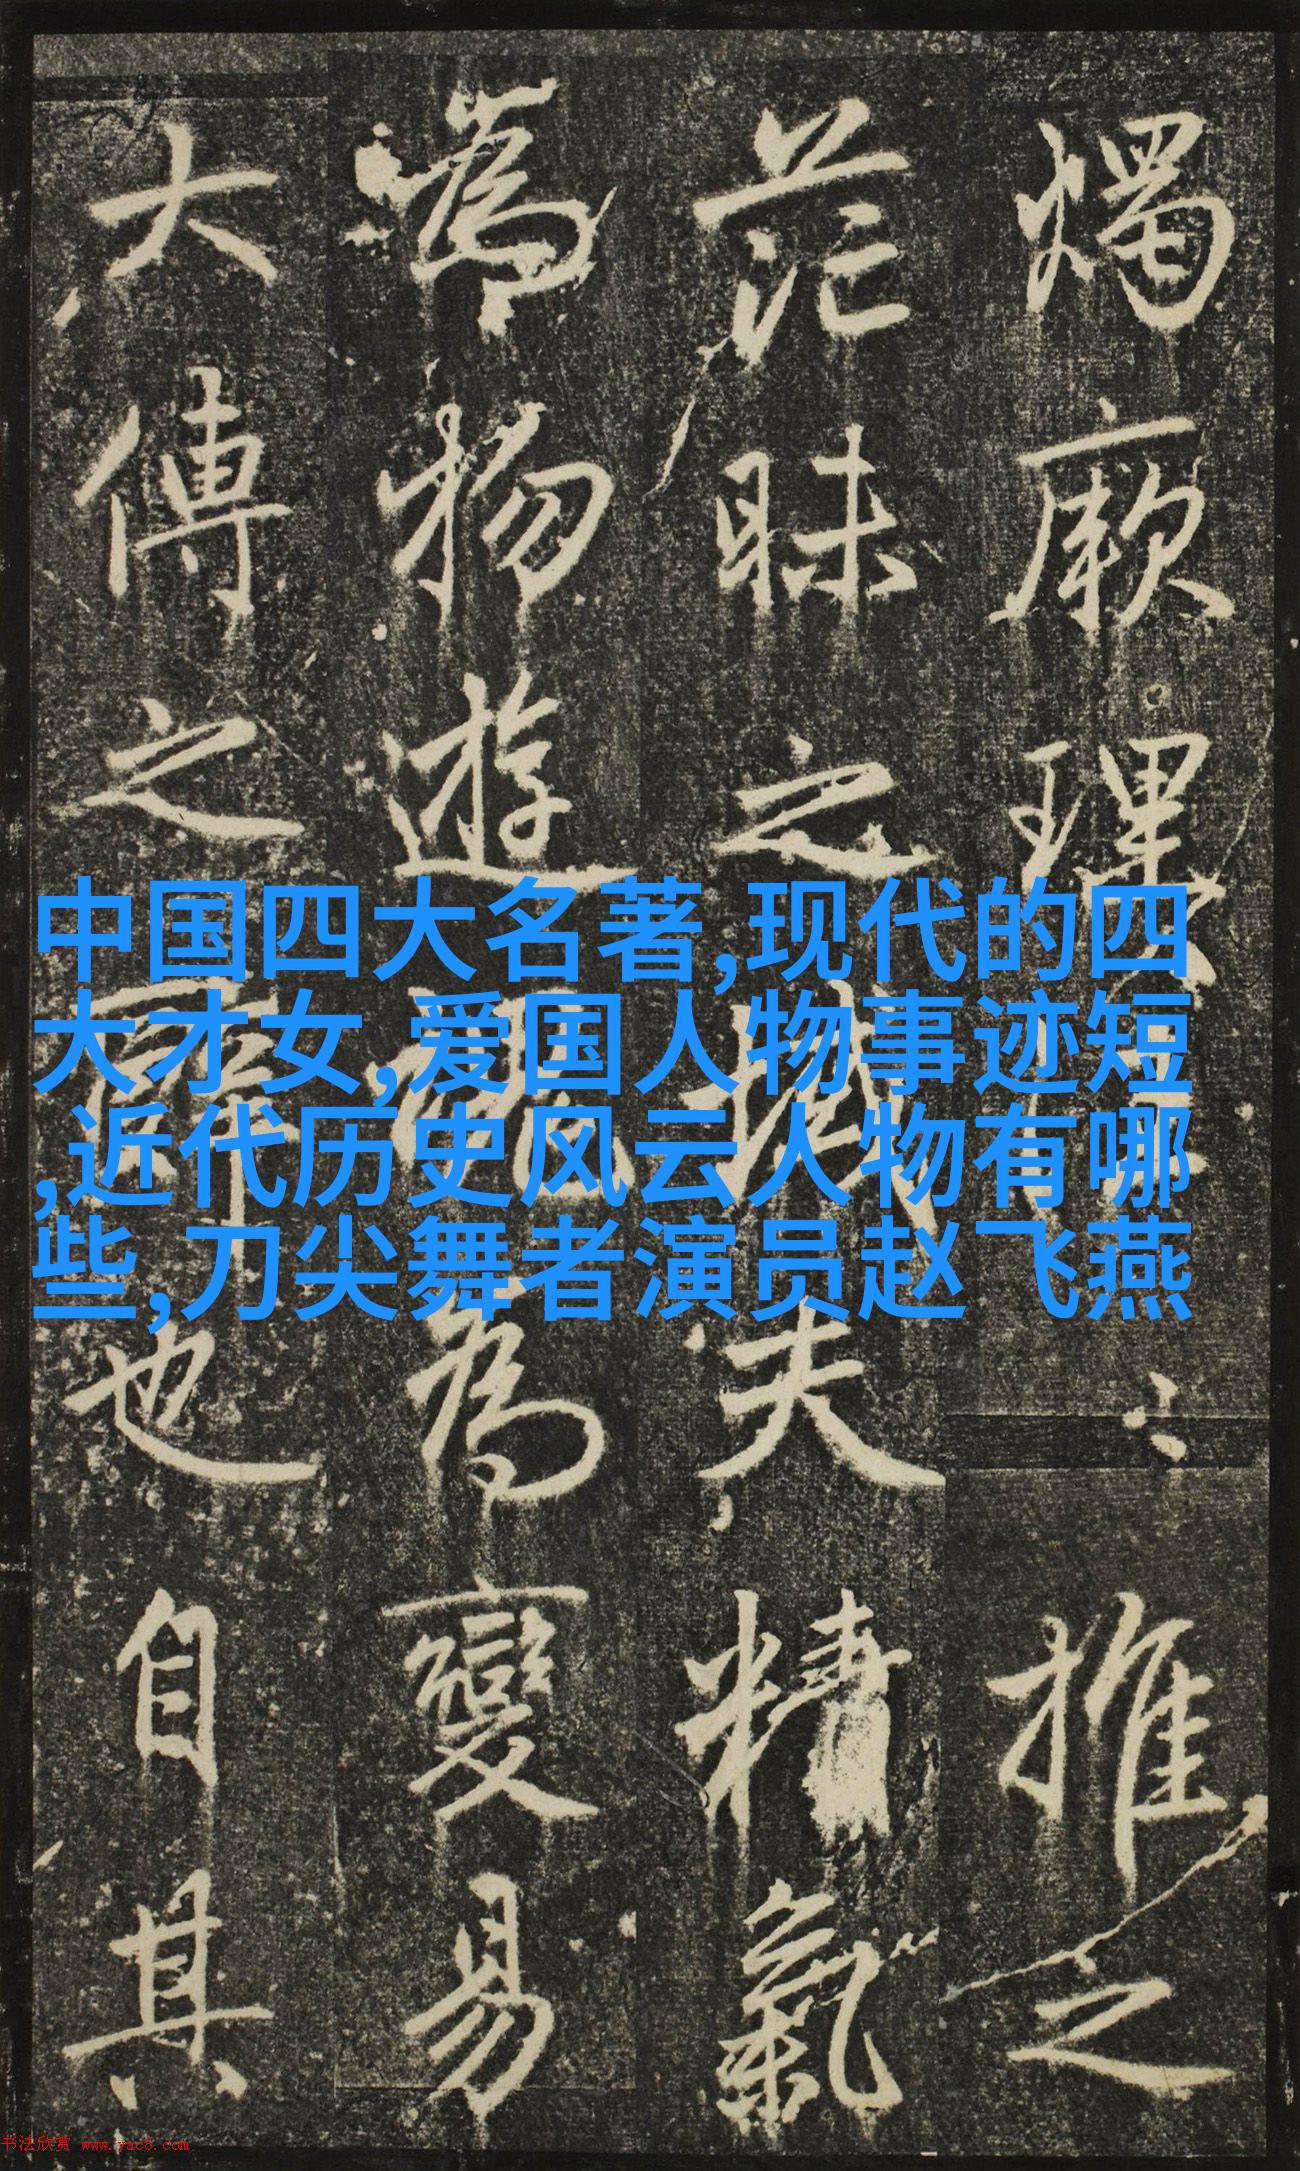 燭厥理推之
茫昧之夫精氣
為物遊為變易
大傳之辭也自其
中国四大名著,现代的四
大才女,爱国人物事迹短
,近代历史风云人物有哪
些,刀尖舞者演员赵飞燕
书法欣赏 www.yac8.com